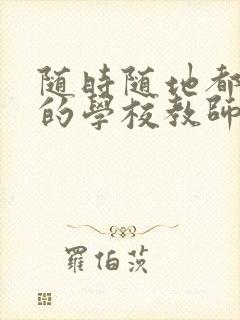 随時随地都
的學校教師
羅伯茨